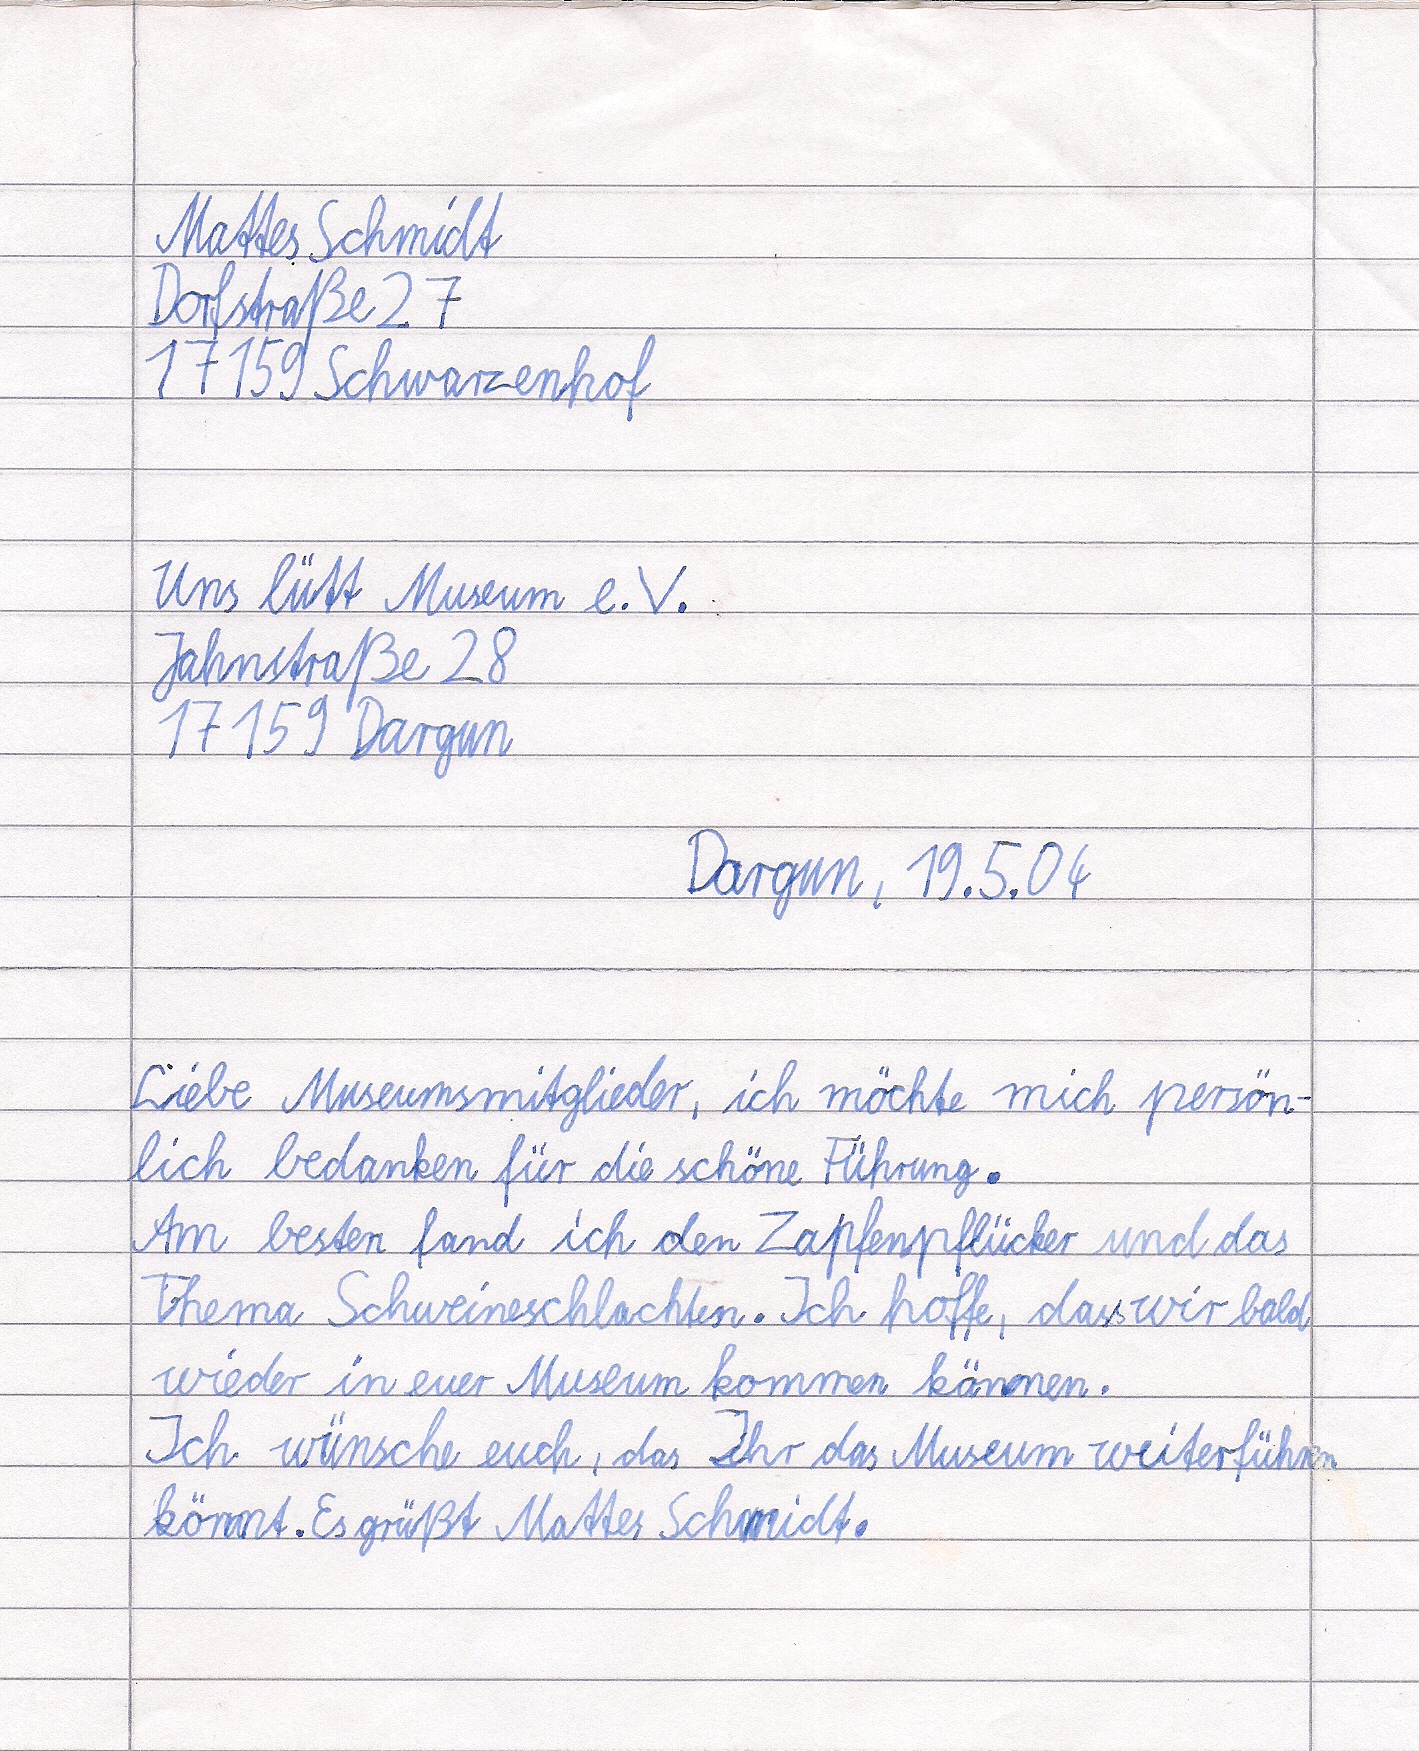 Mattes Schmidt
Dorfstraße 27
17159 Schwarzenhof
Uns lütt Museum e.V.
Jahnstraße 28
17159 Dargun
Dargun, 19.5.04
Liebe Museumsmitglieder, ich möchte mich persön-
lich bedanken für die schöne Führung.
Am besten fand ich den Zapfenpflücker und das
Thema Schweineschlachten. Ich hoffe, dass wir bald
wieder in euer Museum kommen können.
Ich wünsche euch, das Ihr das Museum weiterführen
könnt. Es grüßt Mattes Schmidt.